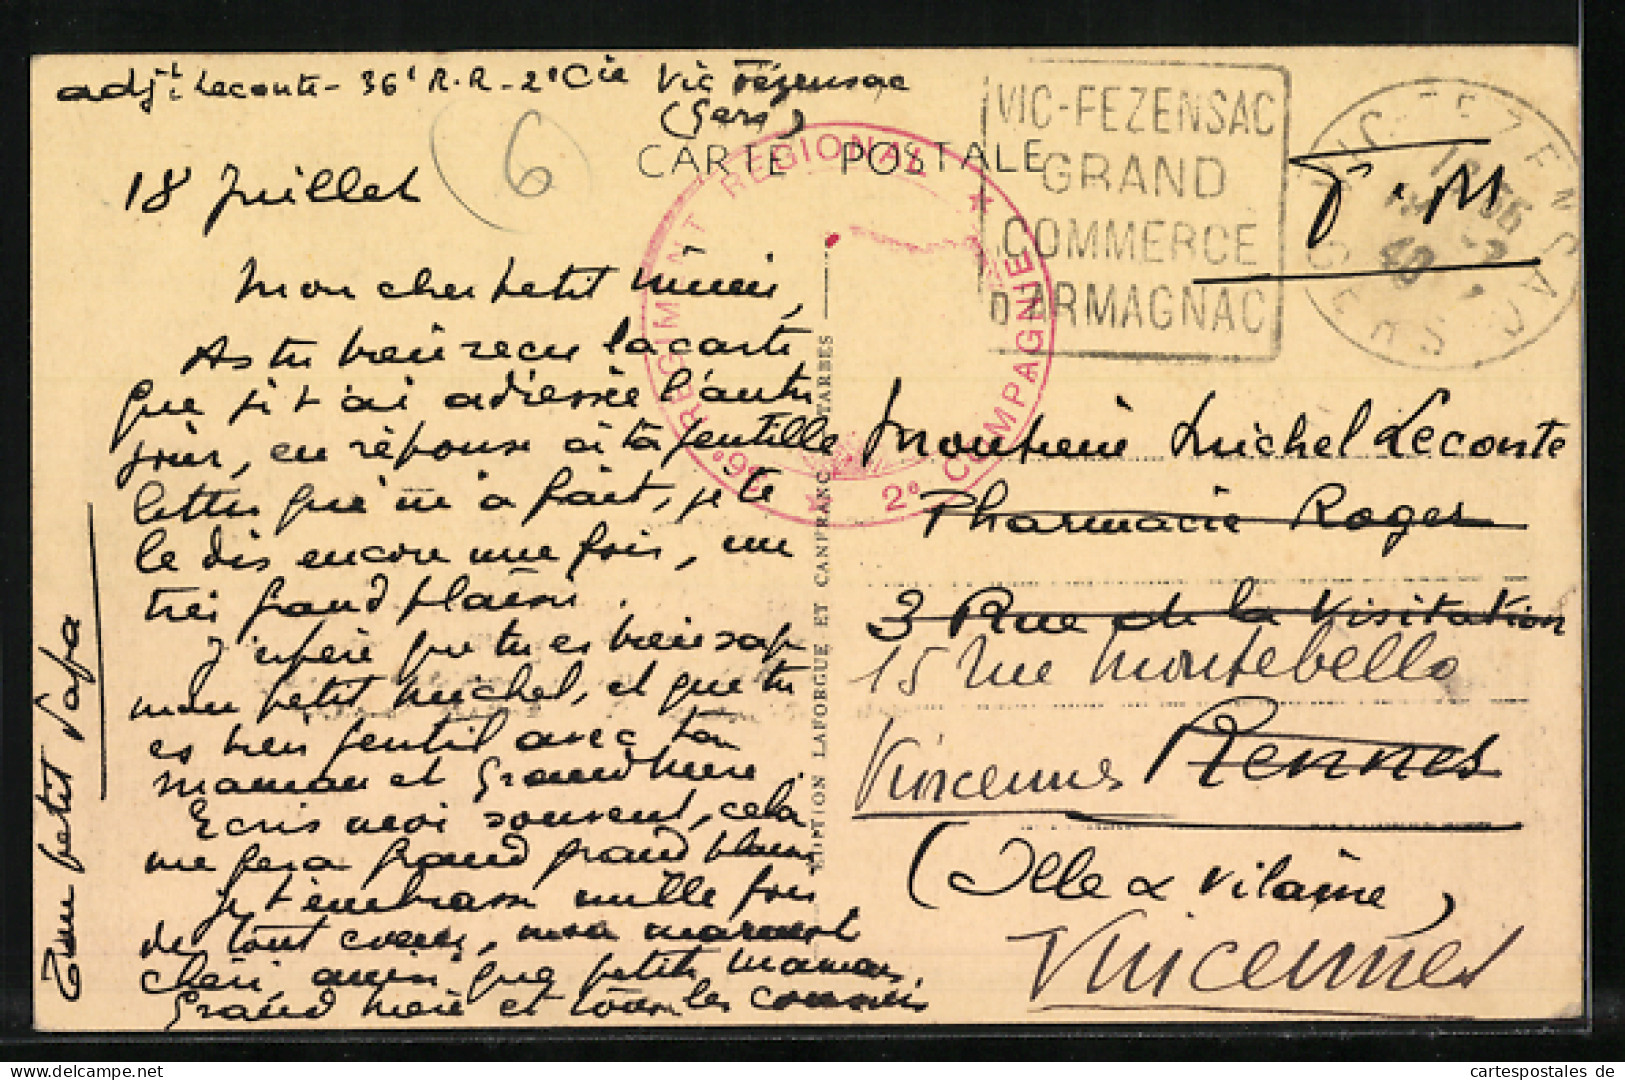 adjt Leconte - 36e R.R - 2e Cie Vic Fézensac
(Gers)
6
CARTE POSTALE
VIC-FEZENSAC
GRAND
COMMERCE
D'ARMAGNAC
VIC-FEZENSAC
GERS
40
F.M
36e REGIMENT REGIONAL
2e COMPAGNIE
18 Juillet
Mon cher petit Mimi,
As tu bien reçu la carte
que je t'ai adressée l'autre
jour, en réponse à ta gentille
lettre qui m'a fait, je te
le dis encore une fois, un
très grand plaisir.
J'espère que tu es bien sage
mon petit Michel, et que tu
es bien gentil avec ta
maman et Grand'mère.
Ecris moi souvent, cela
me fera grand grand plaisir
je t'embrasse mille fois
de tout coeur, mon
chéri, ainsi que petite Maman,
Grand'mère et tous les cousins
Ton petit Papa
EDITION LAFORGUE ET CANFRANC, TARBES
Monsieur Michel Leconte
Pharmacie Roger
3 Rue de la Visitation
15 rue Montebello
Vincennes Rennes
(Ille & Vilaine)
Vincennes
www.cartespostales.de
cartespostales de